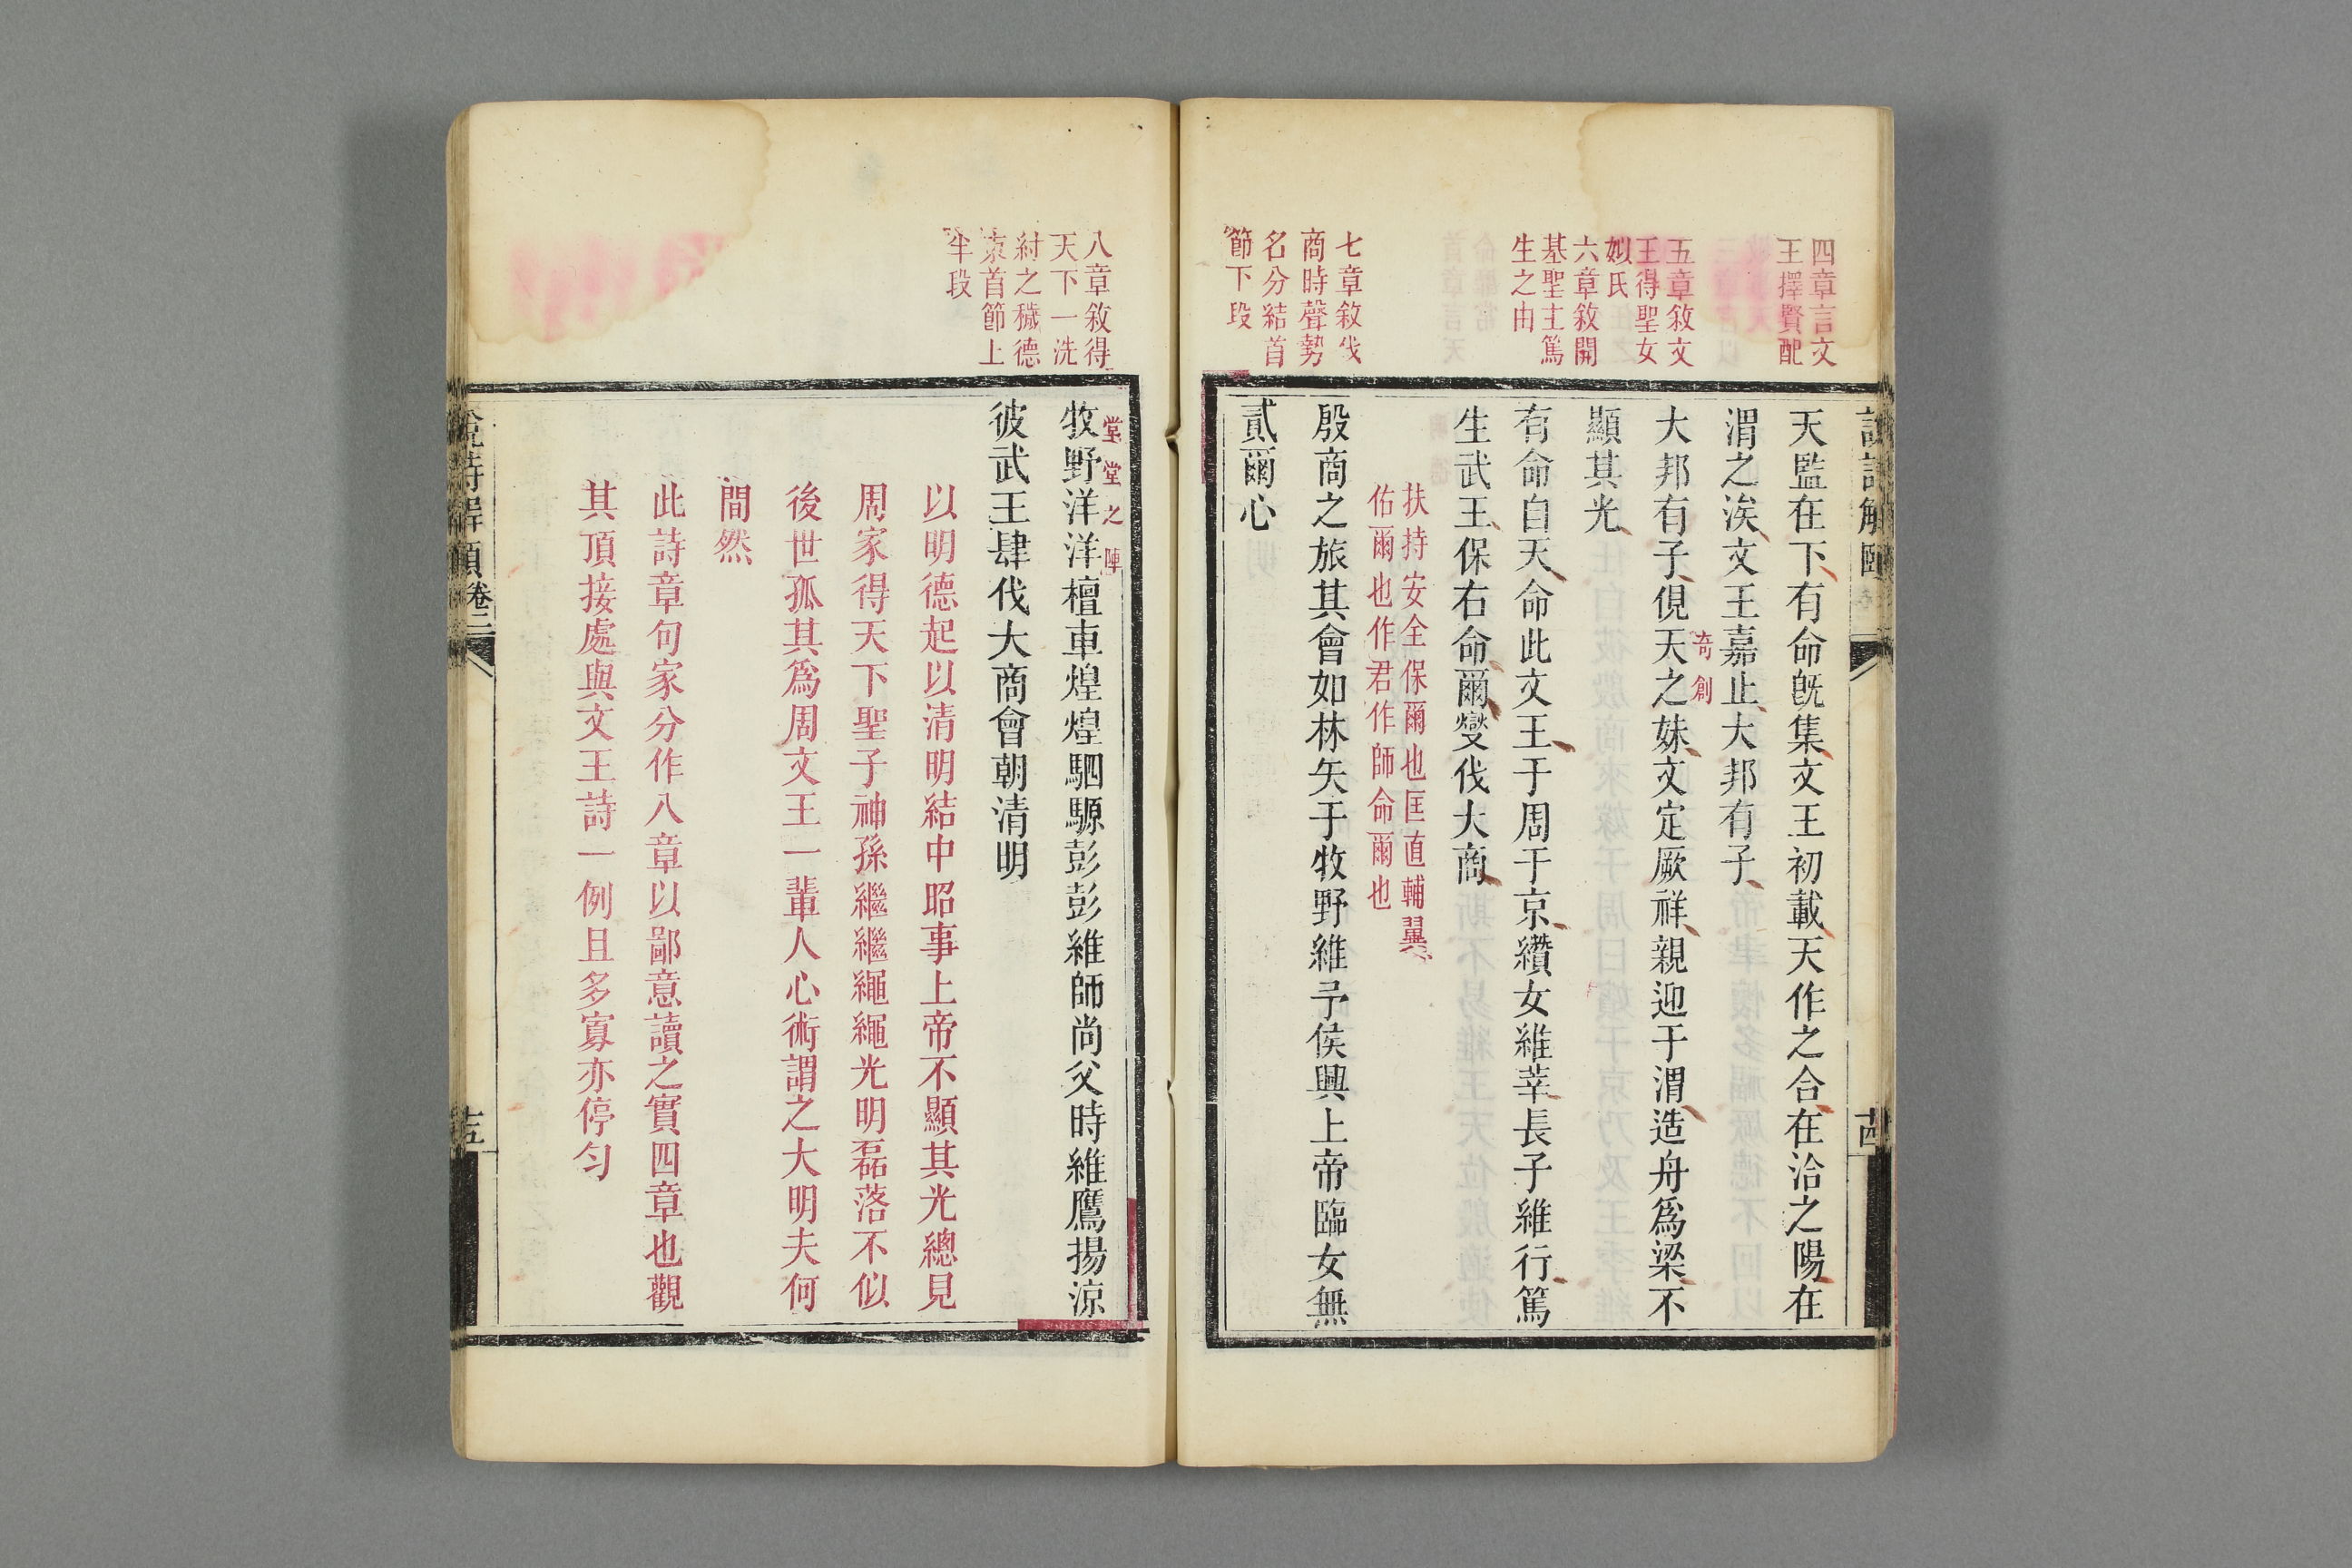 四章言文
王擇賢配
五章敘文
王得聖女
姒氏
六章敘開
基聖主篤
生之由
七章敘伐
商時聲勢
名分結首
節下段
說詩解頤
十四
天監在下有命旣集文王初載天作之合在洽之陽在
渭之涘文王嘉止大邦有子
大邦有子俔天之妹文定厥祥親迎于渭造舟爲梁不
奇創
顯其光
有命自天命此文王于周于京纘女維莘長子維行篤
生武王保右命爾燮伐大商
扶持安全保爾也匡直輔翼
佑爾也作君作師命爾也
殷商之旅其會如林矢于牧野維予侯興上帝臨女無
貳爾心
八章敘得
天下一洗
紂之穢德
束首節上
半段
堂堂之陣
牧野洋洋檀車煌煌駟騵彭彭維師尚父時維鷹揚涼
彼武王肆伐大商會朝清明
以明德起以清明結中昭事上帝不顯其光總見
周家得天下聖子神孫繼繼繩繩光明磊落不似
後世孤其爲周文王一輩人心術謂之大明夫何
間然
此詩章句家分作八章以鄙意讀之實四章也觀
其頂接處與文王詩一例且多寡亦停勻
說詩解頤 卷二
十五